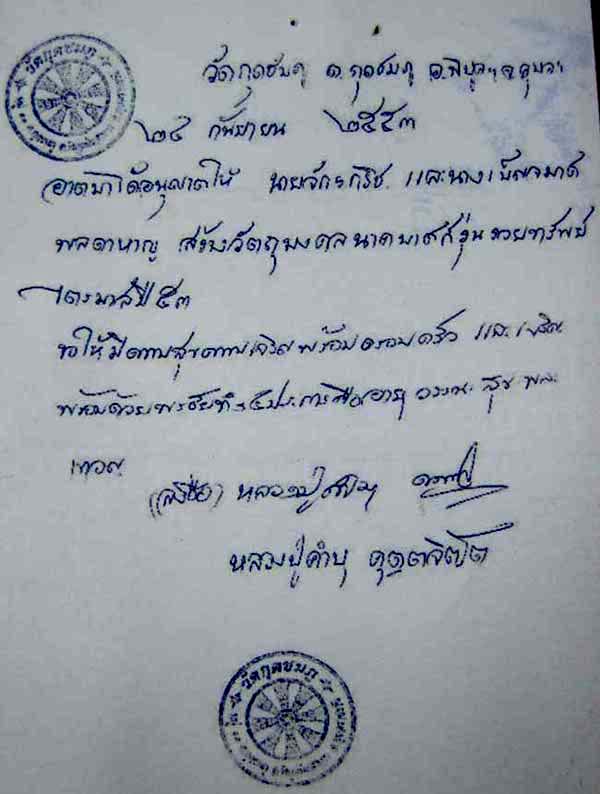 วัดกุดชมภู
วัดกุดชมภู ต.กุดชมภู อ.พิบูลฯ จ.อุบลฯ
๒๔ กันยายน ๒๕๕๓
อาตมาได้อนุญาตให้ นายจักรกริช และนางเบ็ญจมาศ
พลดาหาญ สร้างวัตถุมงคลนาคบาศก์รุ่นรวยทรัพย์
ไตรมาสปี ๕๓
ขอให้มีความสุขความเจริญพร้อมครอบครัว และ
พร้อมด้วยพรชัยทั้ง ๔ ประการคือ อายุ วรรณะ สุขะ พละ
เทอญ
(ลงชื่อ) หลวงปู่คำบุ
หลวงปู่คำบุ คุตฺตจิตฺโต
วัดกุดชมภู